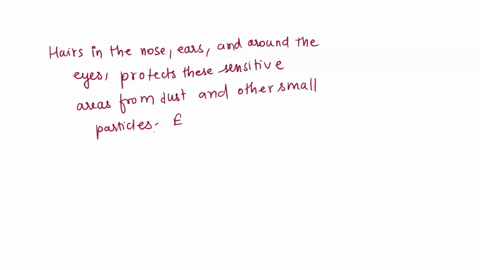 Hairs in the nose, ears, and around the
eyes, protects these sensitive
areas from dust and other small
particles- E